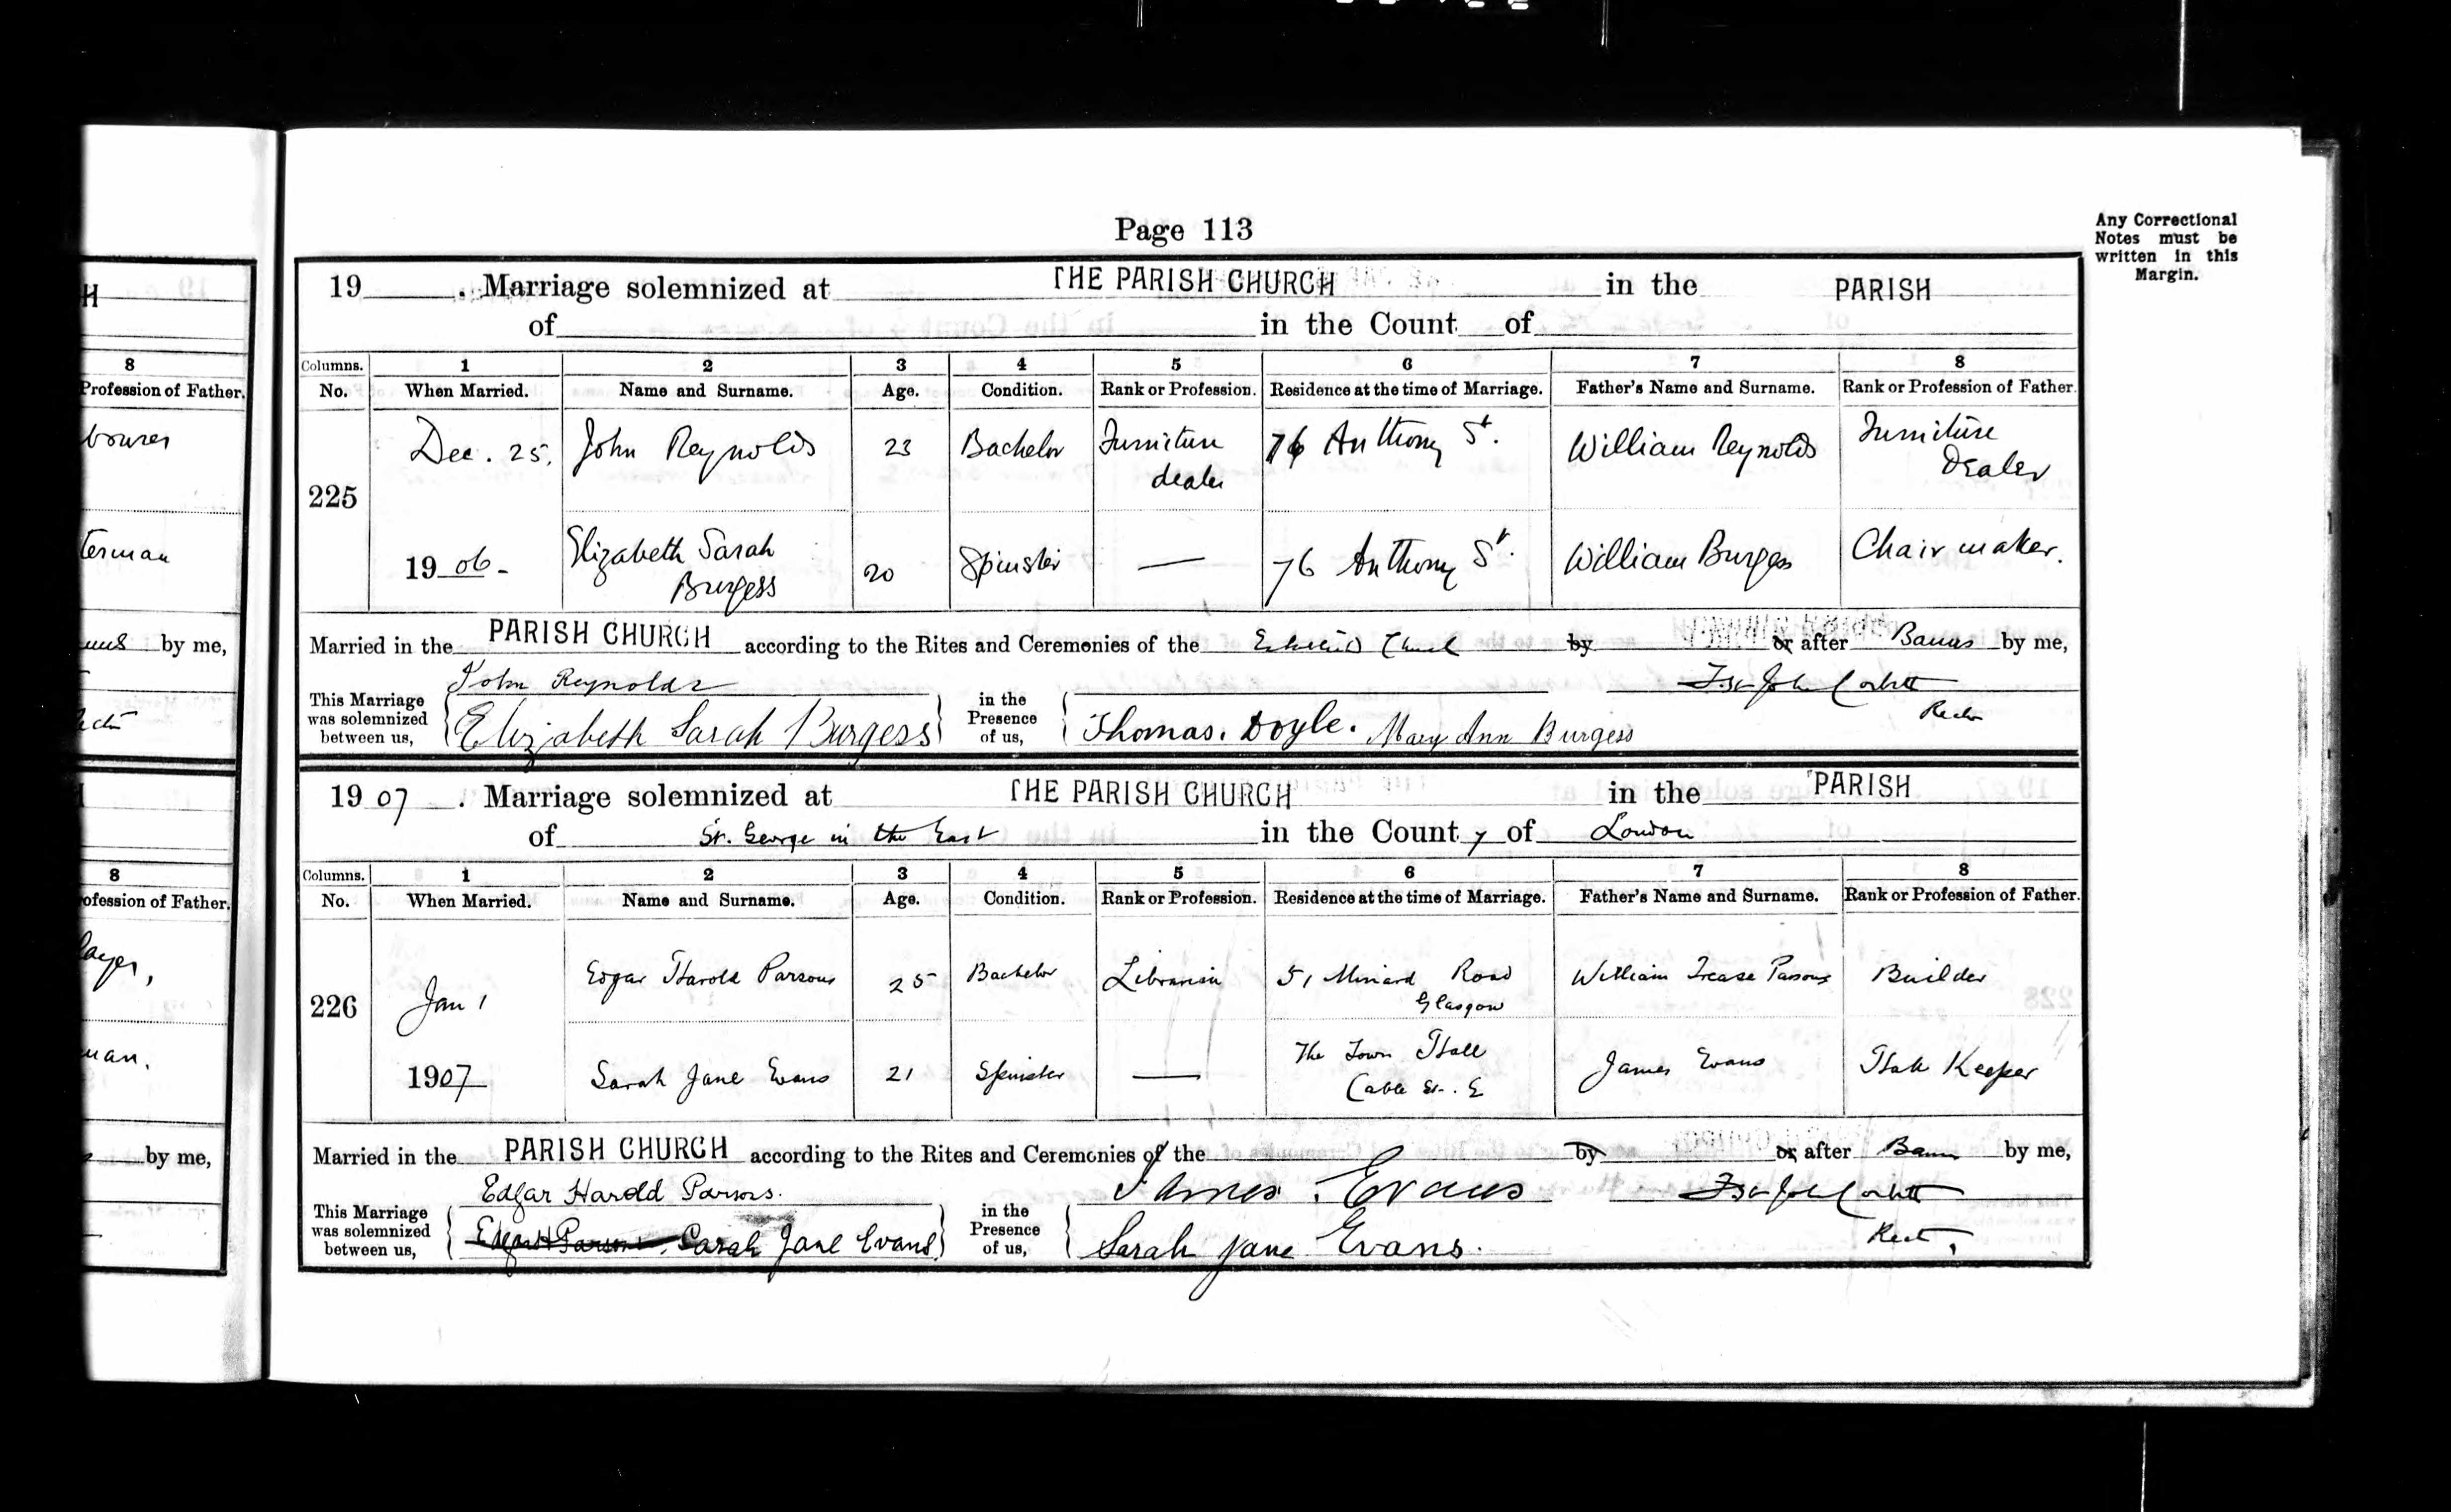 Page 113
Any Correctional
Notes must be
written in this
Margin.
19 . Marriage solemnized at THE PARISH CHURCH in the PARISH
of in the Count of
Columns. 1 2 3 4 5 6 7 8
No. When Married. Name and Surname. Age. Condition. Rank or Profession. Residence at the time of Marriage. Father's Name and Surname. Rank or Profession of Father.
225
Dec. 25. John Reynolds 23 Bachelor Furniture dealer 76 Anthony St. William Reynolds Furniture Dealer
1906 - Elizabeth Sarah Burgess 20 Spinster — 76 Anthony St. William Burgess Chair maker.
Married in the PARISH CHURCH according to the Rites and Ceremonies of the Church by or after Banns by me,
John Reynolds
This Marriage was solemnized between us, Elizabeth Sarah Burgess in the Presence of us, Thomas. Doyle. Mary Ann Burgess
John Corbett
Rector
1907 . Marriage solemnized at THE PARISH CHURCH in the PARISH
of St. George in the East in the County of London
Columns. 1 2 3 4 5 6 7 8
No. When Married. Name and Surname. Age. Condition. Rank or Profession. Residence at the time of Marriage. Father's Name and Surname. Rank or Profession of Father.
226
Jan 1 Edgar Harold Parsons 25 Bachelor Librarian 51 Miniard Road Glasgow William Trease Parsons Builder
1907 Sarah Jane Evans 21 Spinster — The Town Hall Cable St. E James Evans Hall Keeper
Married in the PARISH CHURCH according to the Rites and Ceremonies of the by or after Banns by me,
Edgar Harold Parsons. James Evans John Corbett
This Marriage was solemnized between us, Edgar H Parsons. Sarah Jane Evans in the Presence of us, Sarah Jane Evans. Rector
H
8
Profession of Father.
by me,
8
ofession of Father.
man.
by me,